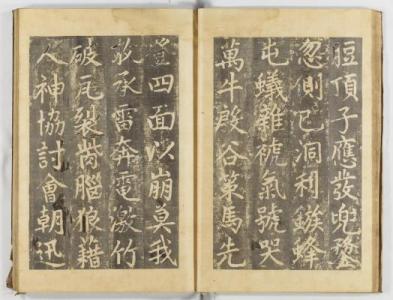 短頂子應發兜鍪
忽側已洞利鏃蜂
屯蟻雜號氣號哭
萬牛殷谷策馬先
登四面以崩莫我
敢承雷奔電激竹
破瓦裂劈腦狼藉
人神協討會朝迅